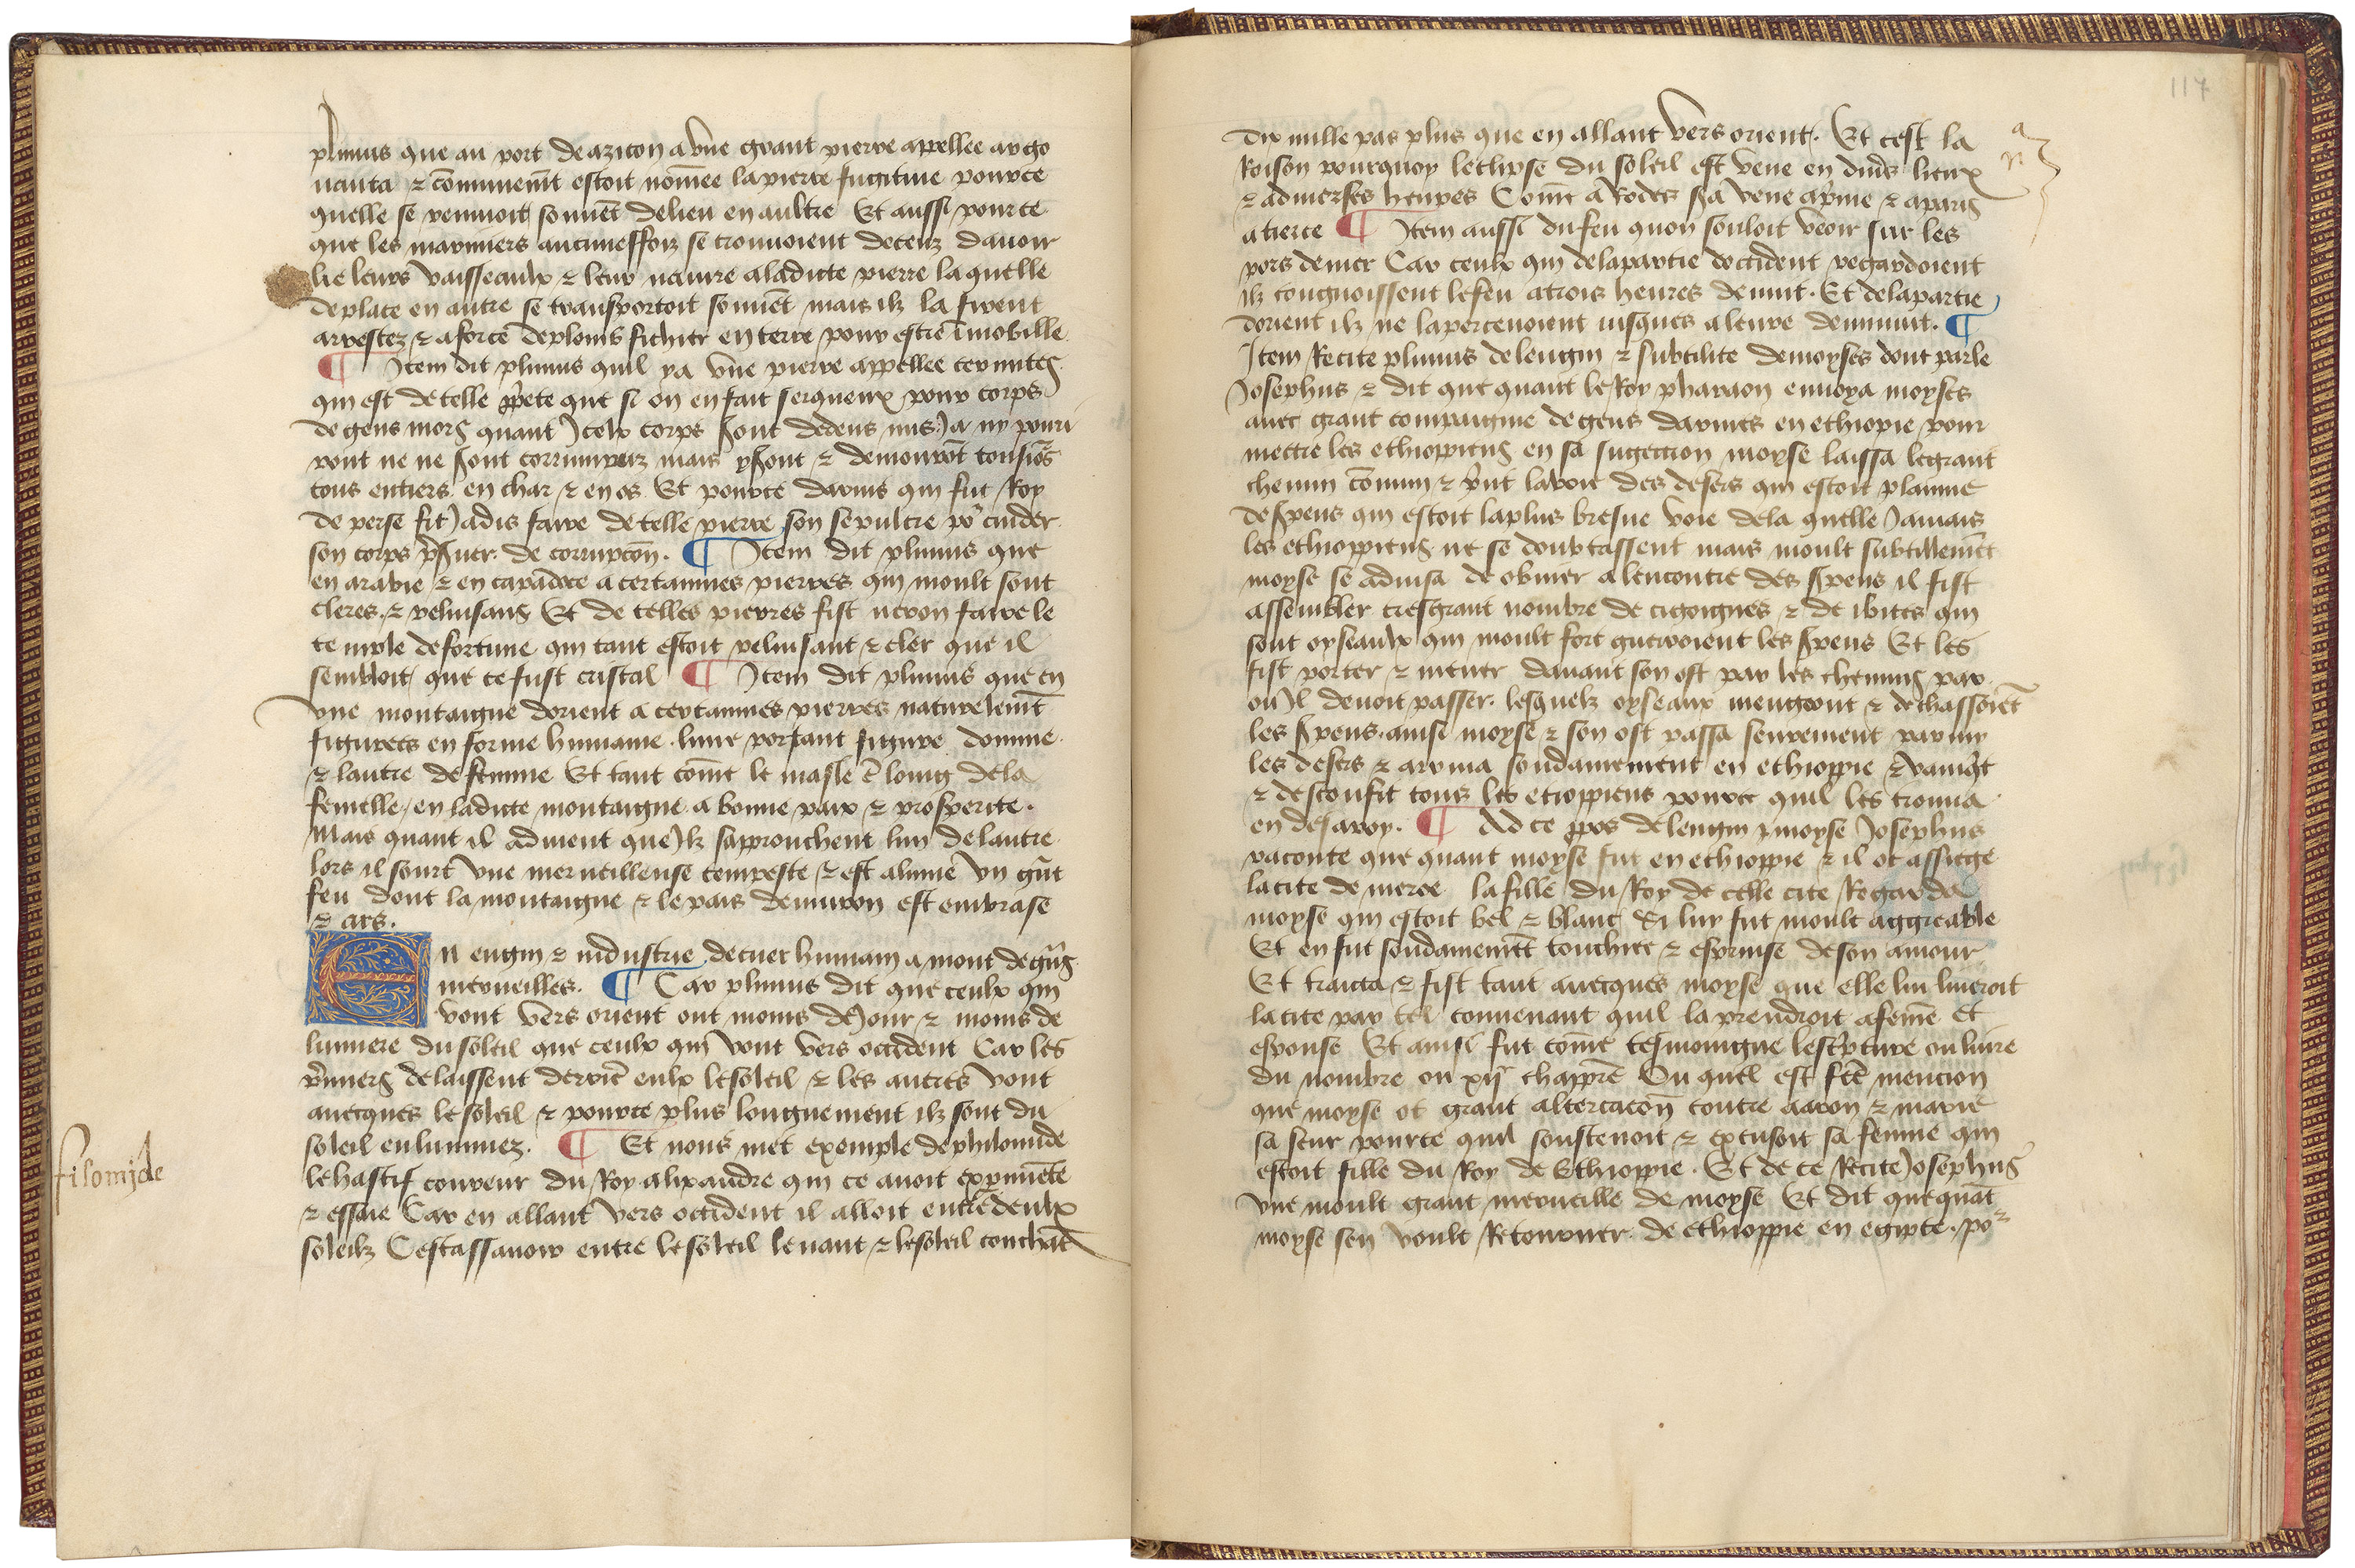 plinius que au port de azicon a vne grant pierre appellee argo
nauta ⁊ cōmunemīt estoit nōmee la pierre fugitiue pource
quelle se remuoit souuēt de lieu en aultre Et aussi pource
que les mariniers aucuneffoiz se trouuoient deceuz dauoir
lie leurs vaisseaulx ⁊ leur nauire a ladicte pierre laquelle
de place en autre se transportoit souuēt mais ilz la firent
arrestez ⁊ a force de plomb fichier en terre pour estre īmobille
¶ Item dit plinius quil ya vne pierre appellee cernites
qui est de telle p̄pete que si on en fait serqueux pour corps
de gens mors quant Iceulx corps sont dedens mis Ja ny pouri
ront ne ne sont corrumpuz mais y sont ⁊ demourōt tousio᷑s
tous entiers en char ⁊ en os Et pource darius qui fut Roy
de perse fit Jadis faire de telle pierre son sepulcre po᷑ cuider
son corps p̄suer de corrupcōn. ¶ Item dit plinius que
en arabie ⁊ en capadoce a certaines pierres qui moult sont
cleres ⁊ reluisans Et de telles pierres fist neron faire le
temple de fortune qui tant estoit reluisant ⁊ cler que il
sembloit que ce fust cristal ¶ Item dit plinius que en
vne montaigne dorient a certaines pierres naturelemīt
figurees en forme humaine lune portant figure domme
⁊ lautre de femme Et tant cōme le masle ē loing de la
femelle en ladicte montaigne a bonne paix ⁊ prosperite.
Mais quant il aduient que Ilz sapprouchent lun de lautre
lors il sourt vne merueilleuse tempeste ⁊ est alume vn gn̄t
feu dont la montaigne ⁊ le pais denuiron est embrase
⁊ ars.
En engin ⁊ industrie de cuer humain a mont de gn̄s
merueilles. ¶ Car plinius dit que ceulx qui
vont vers orient ont moins de Jour ⁊ moins de
lumiere du soleil que ceulx qui vont vers occident Car les
p̄miers delaissent derrie᷑ eulx le soleil ⁊ les autres vont
auecques le soleil ⁊ pource plus longuement ilz sont du
soleil enluminez. ¶ Et nous met exemple de philomide
filomide
le hastif coureur du Roy alixandre qui ce auoit exp̄imēte
⁊ essaie Car en allant vers occident il alloit entre deulx
soleilz Cest assauoir entre le soleil leuant ⁊ le soleil couchāt
117
dix mille pas plus que en allant vers orient. Et cest la
Roison pourquoy leclipse du soleil est veue en diūs lieux
⁊ a diuerses heures Cōme a Rodes sa veue a p̄me ⁊ a paris
a tierce ¶ Item aussi du feu quon souloit veoir sur les
pors de mer Car ceulx qui de la partie doccident regardoient
ilz congnoissent le feu a trois heures de nuit. Et de la partie
dorient ilz ne lapercenoient iusques a leure de minuit. ¶
Item Recite plinius de lengin ⁊ subtilite de moyses dont parle
Josephus ⁊ dit que quant le Roy pharaon enuoya moyses
auec grant compaignie de gens darmes en ethiopie pour
mettre les ethioppiens en sa sugection moyse laissa le grant
chemin cōmun ⁊ p̄nt la voie des desers qui estoit plainne
de s̄pens qui estoit la plus briefue voie de la quelle Jamais
les ethioppiens ne se doubtassent mais moult subtillemēt
moyse se aduisa de obuier a lencontre des s̄pens il fist
assembler tresgrant nombre de cigoignes ⁊ de ibices qui
sont oyseaulx qui moult fort guerroient les s̄pens Et les
fist porter ⁊ mener dauant son ost par les chemins par
ou Il deuoit passer lesquelz oyseaux mengeont ⁊ dechassoiēt
les s̄pens. ainsi moyse ⁊ son ost passa seurement parmy
les desers ⁊ arriua soudainement en ethioppie ⁊ vainq̄t
⁊ desconfit tous les etioppiens pource quil les trouua
en desaroy. ¶ Ad ce p̄pos de lengin moyse Josephus
raconte que quant moyse fut en ethioppie ⁊ il ot assiege
la cite de meroe la fille du Roy de celle cite Regarda
moyse qui estoit bel ⁊ blanc Et luy fut moult aggreable
Et en fut soudainemēt touchee ⁊ esprinse de son amour
Et traicta ⁊ fist tant auecques moyse que elle lui liureroit
la cite par tel conuenant quil la prendroit a femē et
espouse Et ainsi fut cōme tesmoingne lesc̄pture ou liure
du nombre ou xijᵉ chapp̄re Ou quel est fc̄e mencion
que moyse ot grant altercacōn contre aaron ⁊ marie
sa seur pource quil soustenoit ⁊ excusoit sa femme qui
estoit fille du Roy de Ethioppie. Et de ce Recite Josephus
vne moult grant merueille de moyse Et dit que quāt
moyse sen voult Retourner de ethioppie en egipte. po᷑